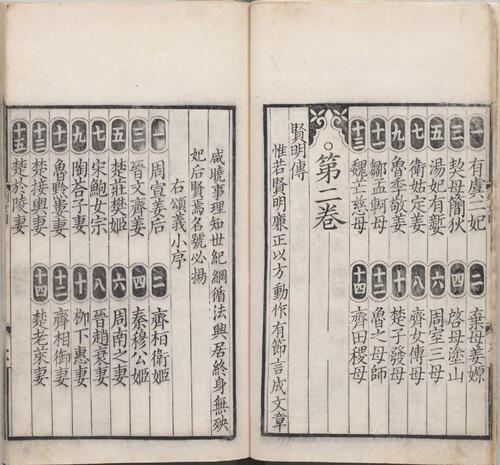 一 有虞二妃 二 棄母姜嫄
三 契母簡狄 四 啓母塗山
五 湯妃有㜪 六 周室三母
七 衛姑定姜 八 齊女傅母
九 魯季敬姜 十 楚子發母
十一 鄒孟軻母 十二 魯之母師
十三 魏芒慈母 十四 齊田稷母
第二卷
賢明傳
惟若賢明廉正以方動作有節言成文章
咸曉事理知世紀綱循法興居終身無殃
妃后賢焉名號必揚
右頌義小序
一 周宣姜后 二 齊桓衛姬
三 晉文齊姜 四 秦穆公姬
五 楚莊樊姬 六 周南之妻
七 宋鮑女宗 八 晉趙衰妻
九 陶荅子妻 十 柳下惠妻
十一 魯黔婁妻 十二 齊相御妻
十三 楚接輿妻 十四 楚老萊妻
十五 楚於陵妻